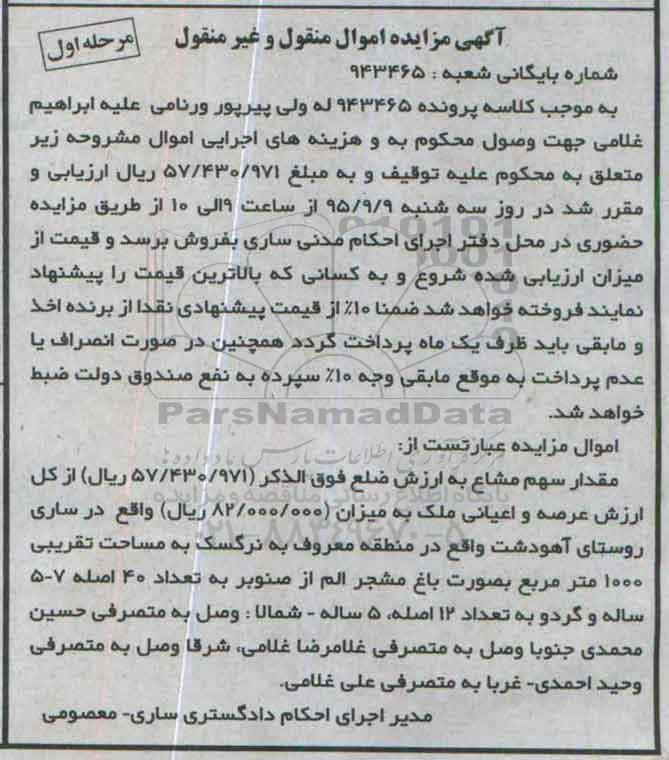 آگهی مزایده اموال منقول و غیر منقول
مرحله اول
شماره بایگانی شعبه : ۹۴۳۴۶۵
به موجب کلاسه پرونده ۹۴۳۴۶۵ له ولی پیرپور ورنامی علیه ابراهیم
غلامی جهت وصول محکوم به و هزینه های اجرایی اموال مشروحه زیر
متعلق به محکوم علیه توقیف و به مبلغ ۵۷/۴۳۰/۹۷۱ ریال ارزیابی و
مقرر شد در روز سه شنبه ۹۵/۹/۹ از ساعت ۹الی ۱۰ از طریق مزایده
حضوری در محل دفتر اجرای احکام مدنی ساری بفروش برسد و قیمت از
میزان ارزیابی شده شروع و به کسانی که بالاترین قیمت را پیشنهاد
نمایند فروخته خواهد شد ضمنا ۱۰٪ از قیمت پیشنهادی نقدا از برنده اخذ
و مابقی باید ظرف یک ماه پرداخت گردد همچنین در صورت انصراف یا
عدم پرداخت به موقع مابقی وجه ۱۰٪ سپرده به نفع صندوق دولت ضبط
خواهد شد.
ParsNamadData
اموال مزایده عبارتست از:
مقدار سهم مشاع به ارزش ضلع فوق الذکر (۵۷/۴۳۰/۹۷۱ ریال) از کل
پایگاه اطلاع رسانی مناقصه و مزایده
ارزش عرصه و اعیانی ملک به میزان (۸۲/۰۰۰/۰۰۰ ریال) واقع در ساری
۰۲۱-۸۸۳۴۹۶۷۰-۵
روستای آهودشت واقع در منطقه معروف به نرگسک به مساحت تقریبی
۱۰۰۰ متر مربع بصورت باغ مشجر الم از صنوبر به تعداد ۴۰ اصله ۷-۵
ساله و گردو به تعداد ۱۲ اصله، ۵ ساله - شمالا : وصل به متصرفی حسین
محمدی جنوبا وصل به متصرفی غلامرضا غلامی، شرقا وصل به متصرفی
وحید احمدی- غربا به متصرفی علی غلامی.
مدیر اجرای احکام دادگستری ساری- معصومی